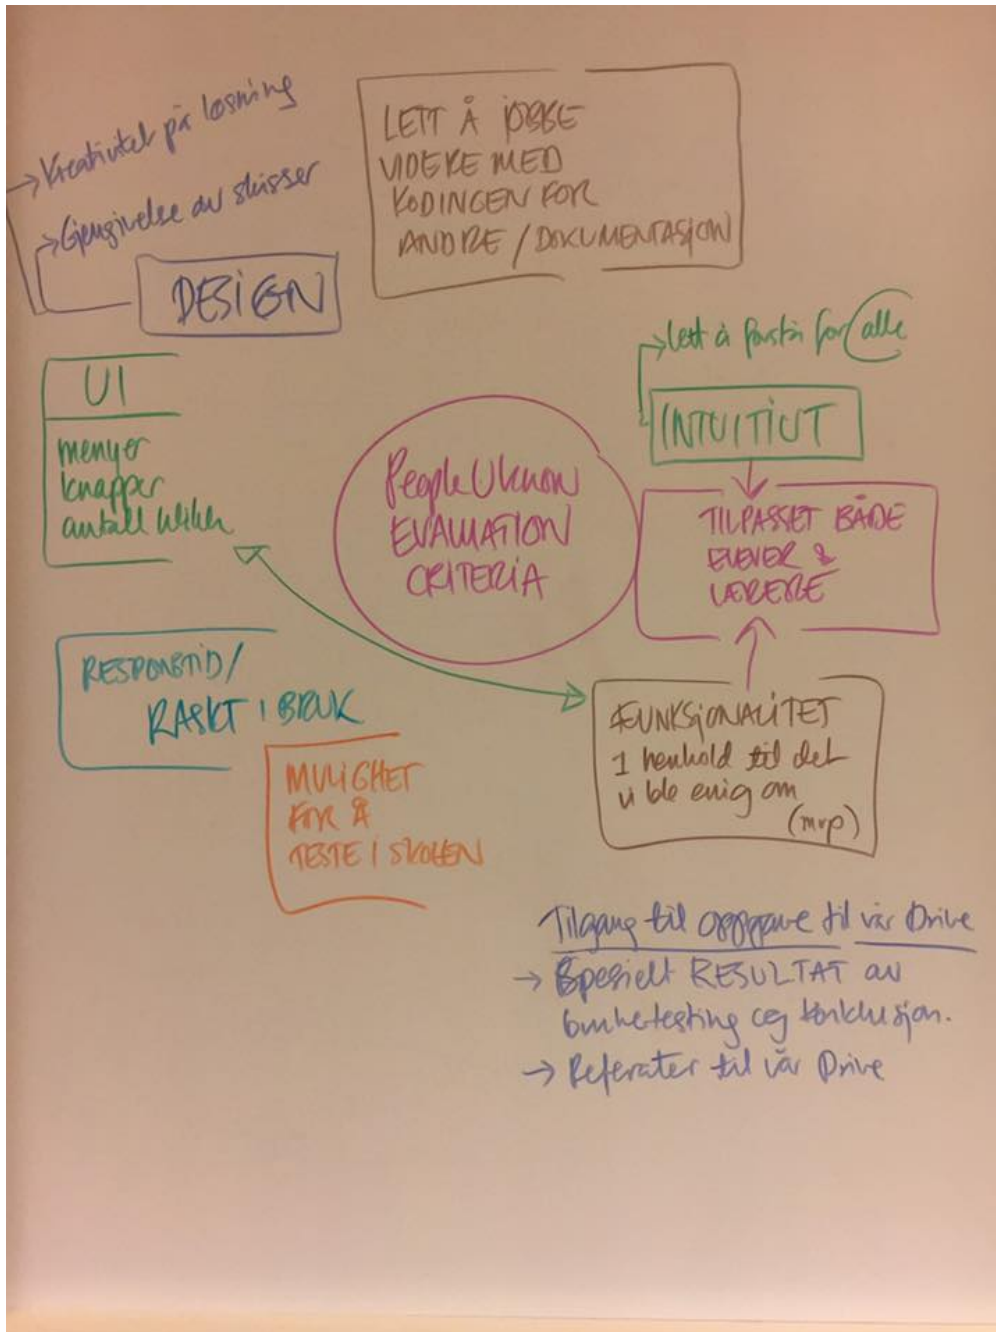 → Kreativitet på løsning
→ Gjengivelse av skisser
DESIGN
LETT Å JOBBE
VIDERE MED
KODINGEN FOR
ANDRE / DOKUMENTASJON
UI
menyer
knapper
antall klikk
→ lett å forstå for alle
INTUITIVT
PeopleUknow
EVALUATION
CRITERIA
TILPASSET BÅDE
ELEVER &
LÆRERE
RESPONSTID/
RASKT I BRUK
MULIGHET
FOR Å
TESTE I SKOLEN
FUNKSJONALITET
I henhold til det
vi ble enig om
(mvp)
Tilgang til oppgave til vår Drive
→ Spesielt RESULTAT av
brukertesting og konklusjon.
→ Referater til vår Drive